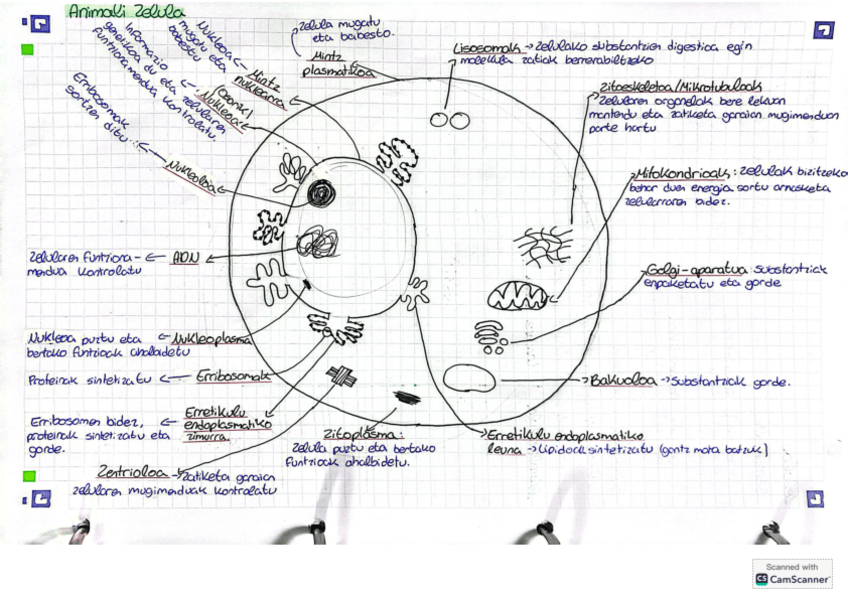 Animali Zelula
Nukleoa
mugatu eta
babestu
Mintz
nuklearra
Informazio
genetikoa du eta zelularen
funtzionamendua kontrolatu.
Nukleoa
Erribosomak
sortzen ditu
Nukleoloa
zelula mugatu
eta babesto.
Mintz
plasmatikoa
Lisosomak → zelulako substantzien digestioa egin
molekula zatiak berrerabiltzeko
Zitoeskeletoa/Mikrotubuloak
zelularen organelak bere lekuan
mantendu eta zatiketa garaian mugimenduan
parte hartu
Mitokondrioak: zelulak bizitzeko
behar duen energia sortu arnasketa
zelularraren bidez.
Golgi-aparatua: substantziak
enpaketatu eta gorde
Bakuoloa → substantziak gorde.
Erretikulu endoplasmatiko
leuna → Lipidoak sintetizatu (gantz mota batzuk)
zelularen funtziona- ← ADN
mendua kontrolatu
Nukleoa puztu eta ← Nukleoplasma
bertako funtzioak ahalbidetu
Proteinak sintetizatu ← Erribosomak
Erribosomen bidez, ← Erretikulu
proteinak sintetizatu eta endoplasmatiko
gorde. zimurra.
Zentrioloa → zatiketa garaian
zelularen mugimenduak kontrolatu
Zitoplasma:
zelula puztu eta bertako
funtzioak ahalbidetu.
Scanned with
CS CamScanner